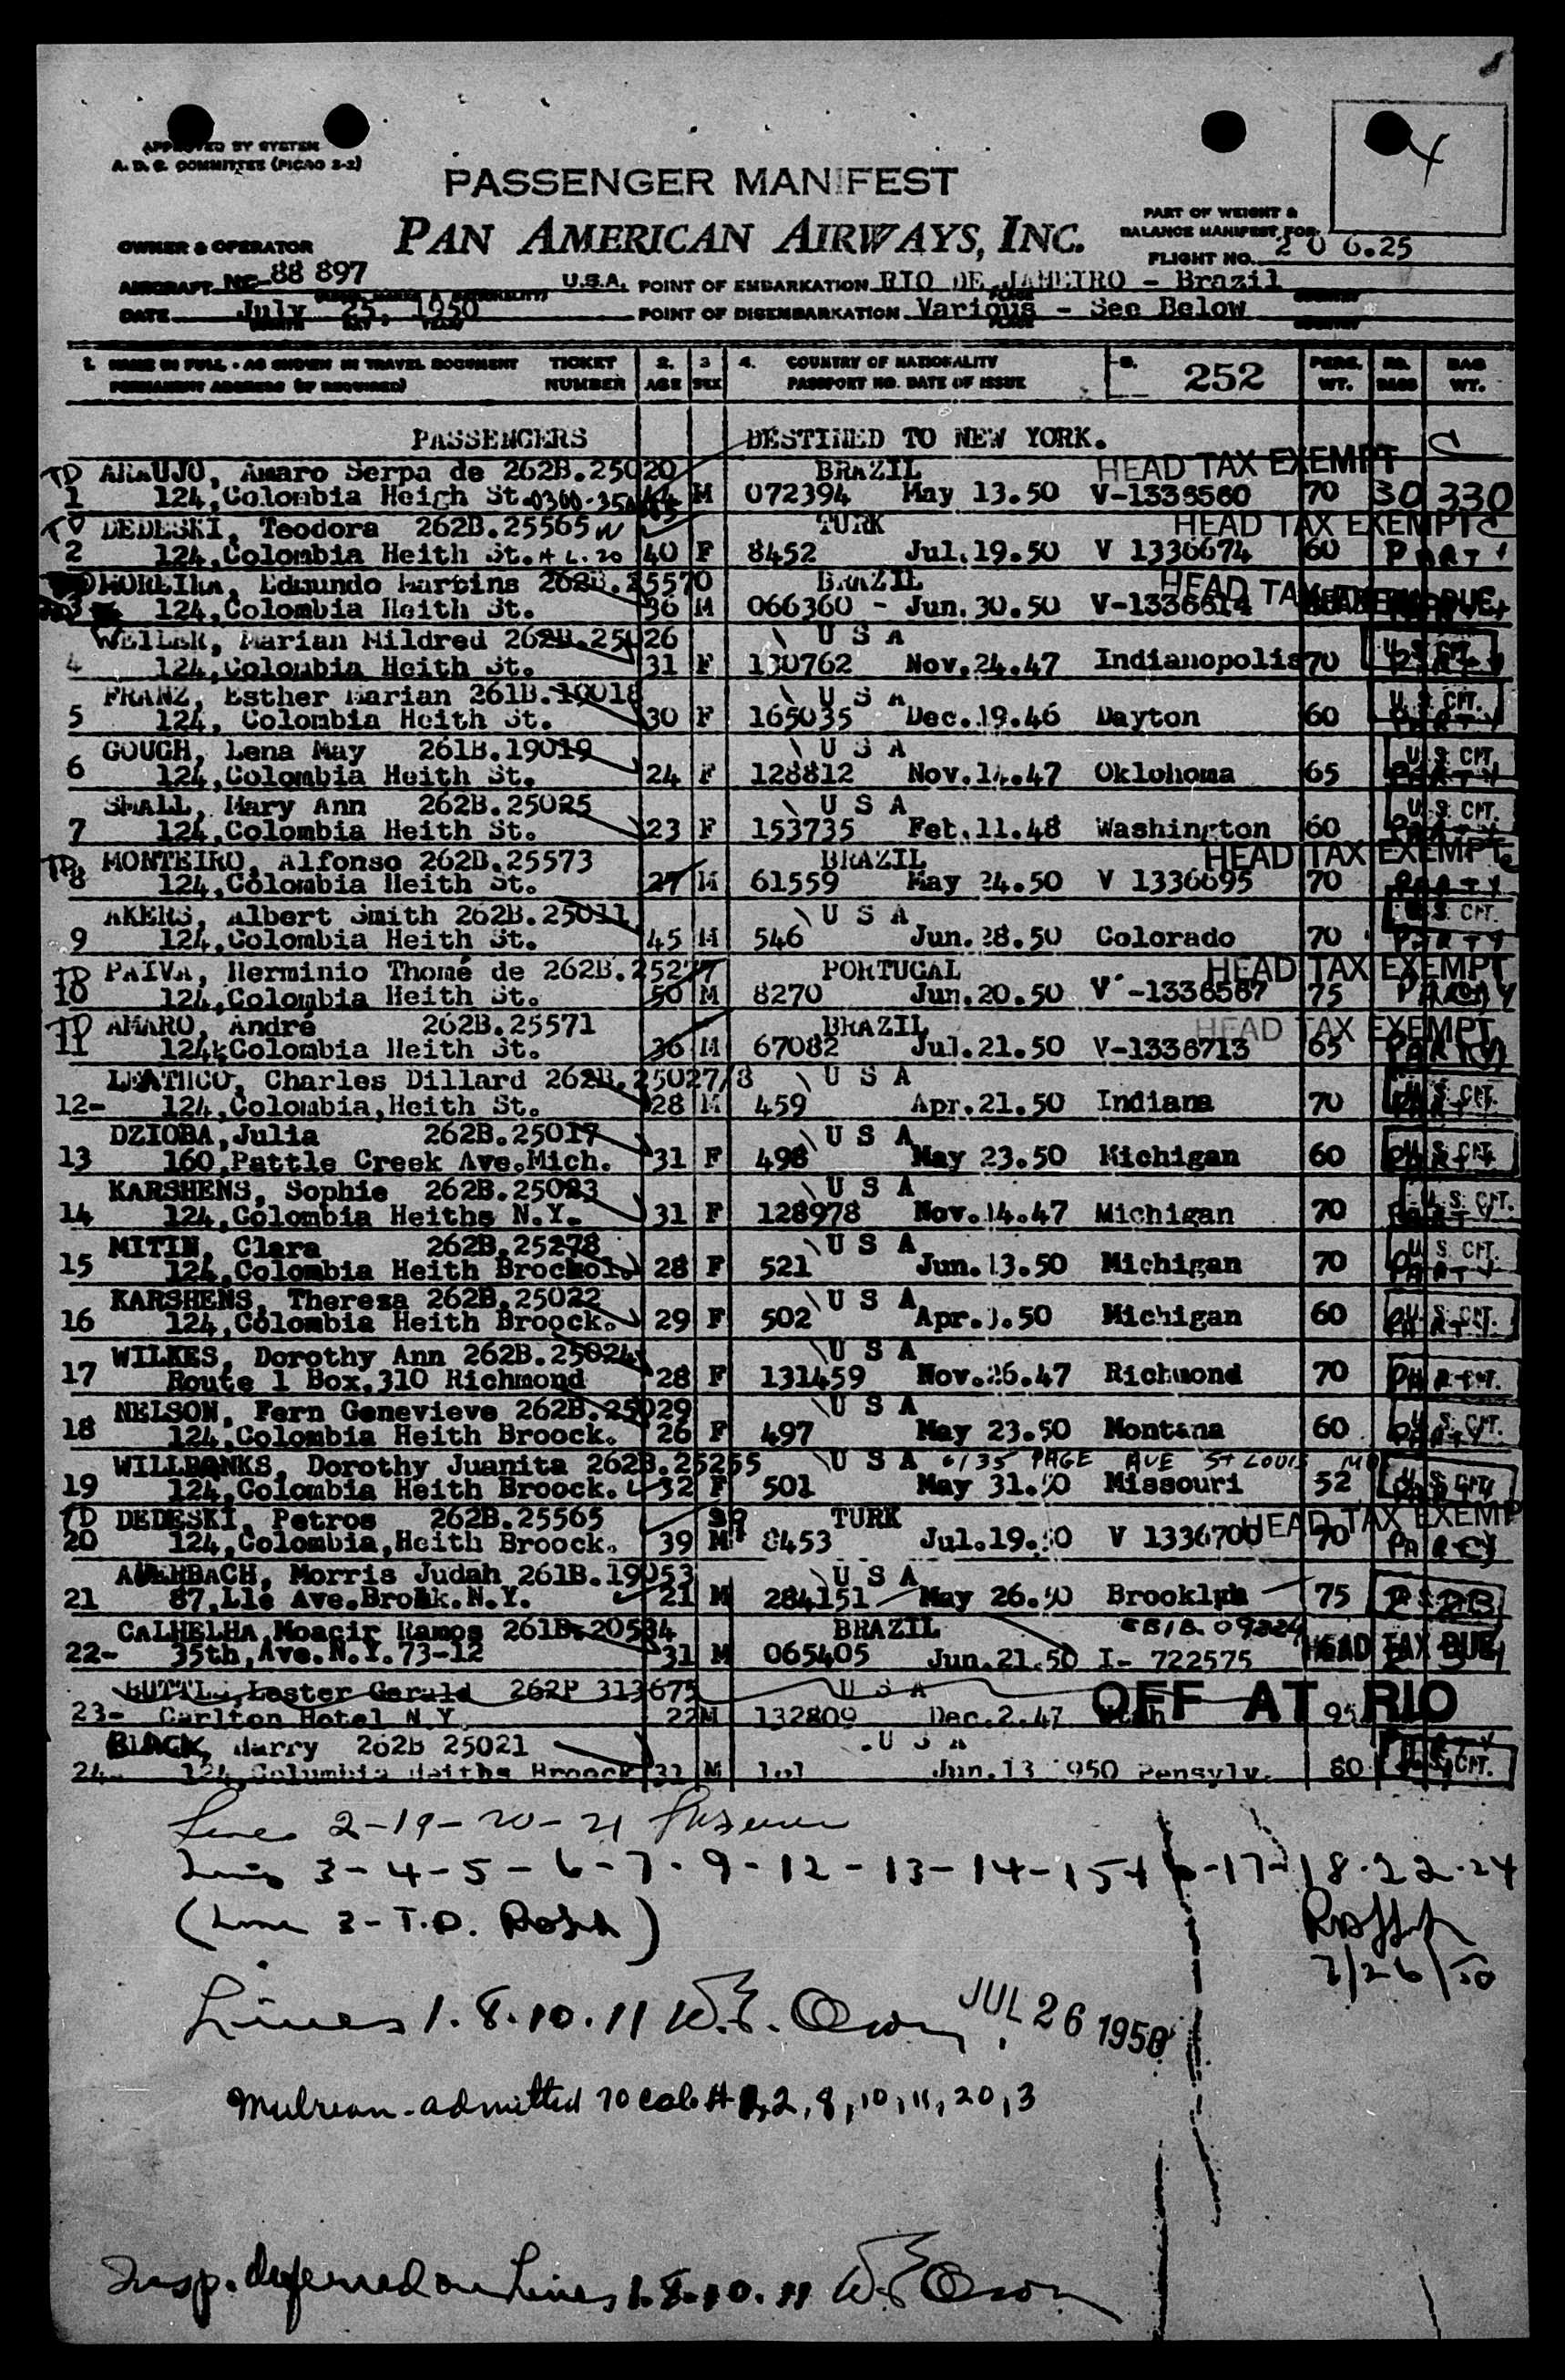 APPROVED BY SYSTEM
A. D. C. COMMITTEE (PICAO 2-2)
4
PASSENGER MANIFEST
PAN AMERICAN AIRWAYS, INC.
PART OF WEIGHT &
BALANCE MANIFEST FOR
OWNER & OPERATOR
FLIGHT NO. 206.25
AIRCRAFT NC-88 897 U.S.A. POINT OF EMBARKATION RIO DE JANEIRO - Brazil
DATE July 25, 1950 POINT OF DISEMBARKATION Various - See Below
1. NAME IN FULL - AS SHOWN IN TRAVEL DOCUMENT TICKET 2. 3 4. COUNTRY OF NATIONALITY 252 PERS. NO. BAG
PERMANENT ADDRESS (IF REQUIRED) NUMBER AGE SEX PASSPORT NO. DATE OF ISSUE WT. BAGS WT.
PASSENGERS DESTINED TO NEW YORK.
TD ARAUJO, Amaro Serpa de 262B.25020 BRAZIL HEAD TAX EXEMPT
1 124,Colombia Heigh St. M 072394 May 13.50 V-1336560 70 30 330
TD DEDESKI, Teodora 262B.25565 TURK HEAD TAX EXEMPT
2 124,Colombia Heith St. 40 F 8452 Jul.19.50 V 1336674 60 PARTY
MOREIRA, Edmundo Martins 262B.25570 BRAZIL HEAD TAX
3 124,Colombia Heith St. 36 M 066360 - Jun.30.50 V-1336614
WELLER, Marian Mildred 262B.25026 U S A
4 124,Colombia Heith St. 31 F 130762 Nov.24.47 Indianopolis 70 U.S. CIT. PARTY
FRANZ, Esther Marian 261B.19018 U S A
5 124, Colombia Heith St. 30 F 165035 Dec.19.46 Dayton 60 U.S. CIT. PARTY
GOUGH, Lena May 261B.19019 U S A
6 124,Colombia Heith St. 24 F 128812 Nov.14.47 Oklohoma 65 U.S. CIT. PARTY
SMALL, Mary Ann 262B.25025 U S A
7 124,Colombia Heith St. 23 F 153735 Fet.11.48 Washington 60 U.S. CIT. PARTY
TD MONTEIRO, Alfonso 262B.25573 BRAZIL HEAD TAX EXEMPT
8 124,Colombia Heith St. 27 M 61559 May 24.50 V 1336695 70 PARTY
AKERS, Albert Smith 262B.25011 U S A U.S. CIT.
9 124,Colombia Heith St. 45 M 546 Jun.28.50 Colorado 70 PARTY
TD PAIVA, Herminio Thomé de 262B.25277 PORTUGAL HEAD TAX EXEMPT
10 124,Colombia Heith St. 50 M 8270 Jun.20.50 V -1336567 75 PARTY
TD AMARO, André 262B.25571 BRAZIL HEAD TAX EXEMPT
11 124,Colombia Heith St. 36 M 67082 Jul.21.50 V-1336713 65 PARTY
Charles Dillard 262B.25027/8 U S A
12- 124,Colombia,Heith St. 28 M 459 Apr.21.50 Indiana 70 U.S. CIT. PARTY
DZIOBA,Julia 262B.25017 U S A
13 160,Pattle Creek Ave.Mich. 31 F 498 May 23.50 Michigan 60 U.S. CIT. PARTY
KARSHENS, Sophie 262B.25023 U S A
14 124,Colombia Heiths N.Y. 31 F 128978 Nov.14.47 Michigan 70 U.S. CIT. PARTY
MITIN, Clara 262B.25278 U S A
15 124,Colombia Heith 28 F 521 Jun.13.50 Michigan 70 U.S. CIT. PARTY
KARSHENS, Theresa 262B.25022 U S A
16 124,Colombia Heith Broock. 29 F 502 Apr. .50 Michigan 60 U.S. CIT. PARTY
WILKES, Dorothy Ann 262B.25024 U S A
17 Route 1 Box,310 Richmond 28 F 131459 Nov.26.47 Richmond 70 PARTY
NELSON, Fern Genevieve 262B.25029 U S A
18 124,Colombia Heith Broock. 26 F 497 May 23.50 Montana 60 U.S. CIT. PARTY
WILLBANKS, Dorothy Juanita 262B.25255 U S A 6135 PAGE AVE St LOUIS MO
19 124,Colombia Heith Broock. 32 F 501 May 31.50 Missouri 52 U.S. CIT.
TD DEDESKI, Petros 262B.25565 39 TURK HEAD TAX EXEMP
20 124,Colombia,Heith Broock. 39 M 8453 Jul.19.50 V 1336700 70 PARTY
AUERBACH, Morris Judah 261B.19053 U S A
21 87,Lle Ave.Broük.N.Y. 21 M 284151 May 26.50 Brooklyn 75
CALHELHA,Moacir Ramos 261B.20584 BRAZIL
22- 35th,Ave.N.Y.73-12 31 M 065405 Jun.21.50 I- 722575 HEAD TAX DUE
BUTTLS,Lester Gerald 262P 313675 U S A OFF AT RIO
23- Carlton Hotel N.Y. 22 M 132809 Dec.2.47 95
BLACK, Harry 262B 25021 U S A
24- 124,Columbia Heiths Broock 31 M Jun.13 1950 Pensylv. 80 U.S. CIT.
Lines 2-19-20-21
Lines 3-4-5-6-7-9-12-13-14-15-16-17-18-22-24
(Line 3-T.D. )
7/26/50
Lines 1.8.10.11 W.E. Olson JUL 26 1950
Mulrean-admitted to Cab # 1,2,8,10,11,20,3
Insp. deferred on Lines 1.8.10.11 W.E. Olson